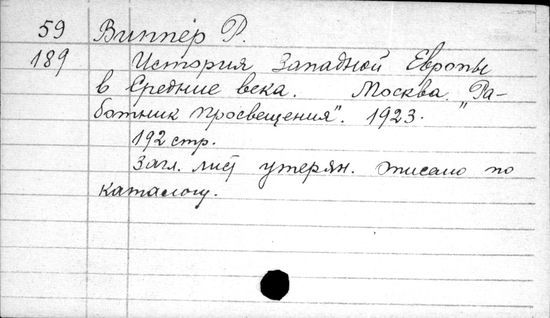 59 Виппер Р.
189 История Западной Европы
в Средние века. Москва. "Ра-
ботник просвещения". 1923.
192 стр.
Загл. лист утерян. Описано по
каталогу.